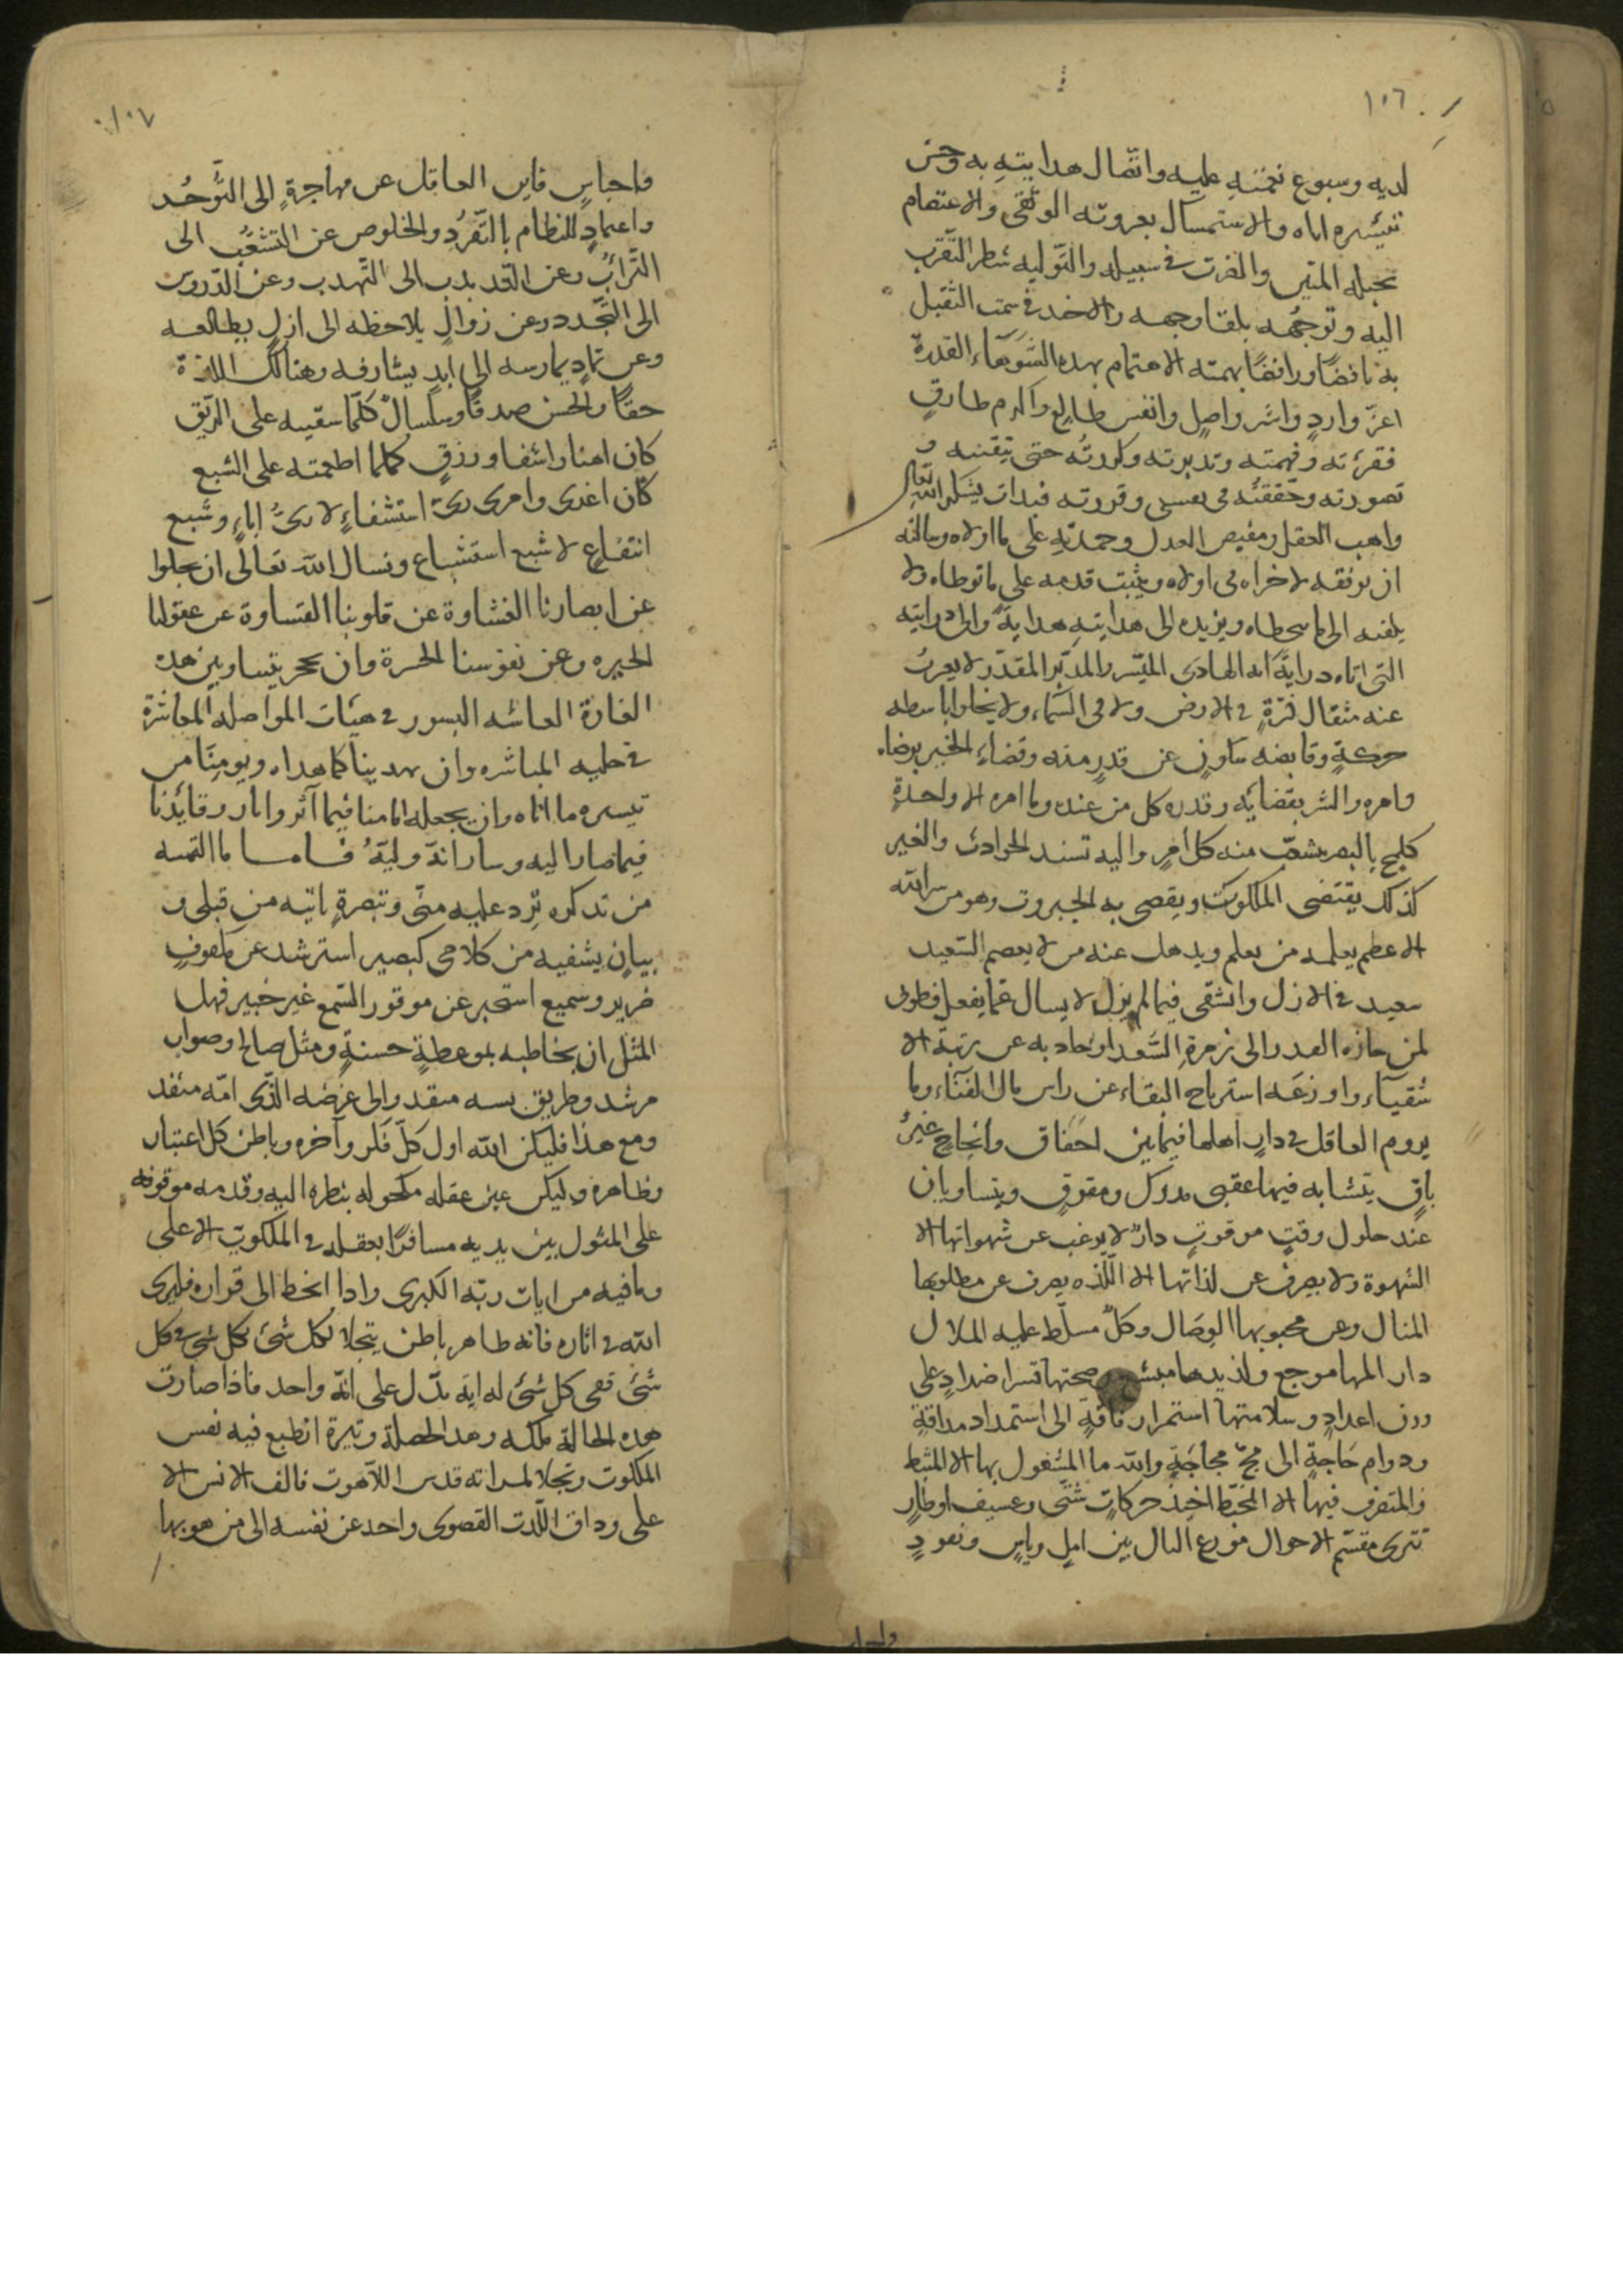 ١٠٦
لديه وسبوع نعمته عليه واتصال هدايته به وحسن
تيسره اياه والاستمسال بعروته الوثقى والاعتصام
بحبله المتين والضرب في سبيله والتوليه شطر التقرب
اليه وتوجهه بلقا وجهه والاخد في سمت التقبل
به نافضا ورافضا بهمته الاهتمام بهده الشوهاء القدرة
اعز وارد واسر واصل وانفس طالع واكرم طارق
فقرءته وفهمته وتدبرته وكررته حتى تيقنته و
تصورته وتحققته في نفسي وقررته فبدات بشكر الله تعالى
واهب العقل ومفيض العدل وحمدته على ما اولاه وسالته
ان يوفقه لاخراه في اولاه ويثبت قدمه على ما توطاه ولا
يلفته الى ما تخطاه ويزيده الى هدايته هداية والى درايته
التي اتاه دراية انه الهادى الميسر والمدبر المقدر لا يعزب
عنه مثقال ذرة في الارض ولا في السماء ولا يخلوا باسطه
حركة وقابضه سكون عن قدر منه وقضاء الخير برضاه
وامره والشر بقضائه وقدره كل من عنده وما امره الا واحدة
كلمح بالبصر يشعب منه كل امر واليه تسند الحوادث والغير
كذلك يقتضى الملكوت ويقصى به الجبروت وهو من سر الله
الاعظم يعلمه من يعلم ويدهل عنه من لا يعصم السعيد
سعيد في الازل والشقى فيما لم يزل لا يسال عما يفعل فطوبى
لمن حازه القدر الى زمرة السعدا وحاد به عن رتبة الا
شقياء واوزعه استرباح البقاء عن راس مال الفناء وما
يروم العاقل في دار اهلها فيما بين اخفاق وانجاح غير
باق يتشابه فيها عقبى مدرك ومفوق ويتساويان
عند حلول وقت موقوت دار لا يرغب عن شهواتها الا
الشهوة ولا يصرف عن لذاتها الا اللذه يصرف عن مطلوبها
المنال وعن محبوبها الوصال وكل مسلط عليه الملال
دار المها موجع ولذيدها مبشع وصحتها قسر اضداد على
وزن اعداد وسلامتها استمرار فاقة الى استمداد مداقة
ودوام حاجة الى مج مجاجة والله ما المشغول بها الا المثبط
والمتفرف فيها الا المخبط اخيذ حركات شتى وعسيف اوطار
تترى مقسم الاحوال موزع البال بين امل وياس ونعود
١٠٧
واجباس فاين العاقل عن مهاجرة الى التوحد
واعماد للنظام بالتفرد والخلوص عن التشعب الى
التراب وعن التدبدب الى التهدب وعن الدروس
الى التجدد وعن زوال يلاحظه الى ازل يطالعه
وعن تماد يمارسه الى ابد يشارفه وهنالك اللذة
حقا والحسن صدقا وسلسال كلما سقيته على الريق
كان اهنا واشفا ورزق كلما اطعمته على الشبع
كان اغدى وامرى رى استشفاء لا رى اباء وشبع
انتفاع لا شبع استشباع ونسال الله تعالى ان يجلوا
عن ابصارنا الغشاوة عن قلوبنا القساوة عن عقولنا
الحيره وعن نفوسنا الحسرة وان يحجر بيننا وبين هده
الغادرة العائشه البسور في هيئات المواصله المعاشرة
في حليه المباشره وان يهدينا كما هداه ويومننا من
تيسره ما اتاه وان يجعله امامنا فيما آثر واثار وقائدنا
فيما صار اليه وسار انه وليه فاما ما التمسه
من تدكره ترد عليه منى وتبصرة اتيه من قبلى و
بيان يشفيه من كلامى كبصير استرشد عن مكفوف
ضرير وسميع استخبر عن موقور السمع غير خبير فهل
المثل ان يخاطبه بموعظة حسنة ومثل صالح وصواب
مرشد وطريق يسه منقد والى غرضه الذى امه منفد
ومع هذا فليكن الله اول كل فكر وآخره وباطن كل اعتبار
وظاهره وليكن عين عقله مكحوله بنظره اليه وقدمه موقوفه
على المثول بين يديه مسافرا بعقله في الملكوت الاعلى
وما فيه من ايات ربه الكبرى واذا انحط الى قراره فليرى
الله في اثاره فانه ظاهر باطن يتجلا لكل شئ بكل شئ في كل
شئ ففى كل شئ له ايه تدل على انه واحد فاذا صارت
هده الحالة ملكه وهد الخصلة وتيرة انطبع فيه نفس
الملكوت وتجلا لمراته قدس اللاهوت فالف الانس الا
على وداق اللدت القصوى واخد عن نفسه الى من هو بها